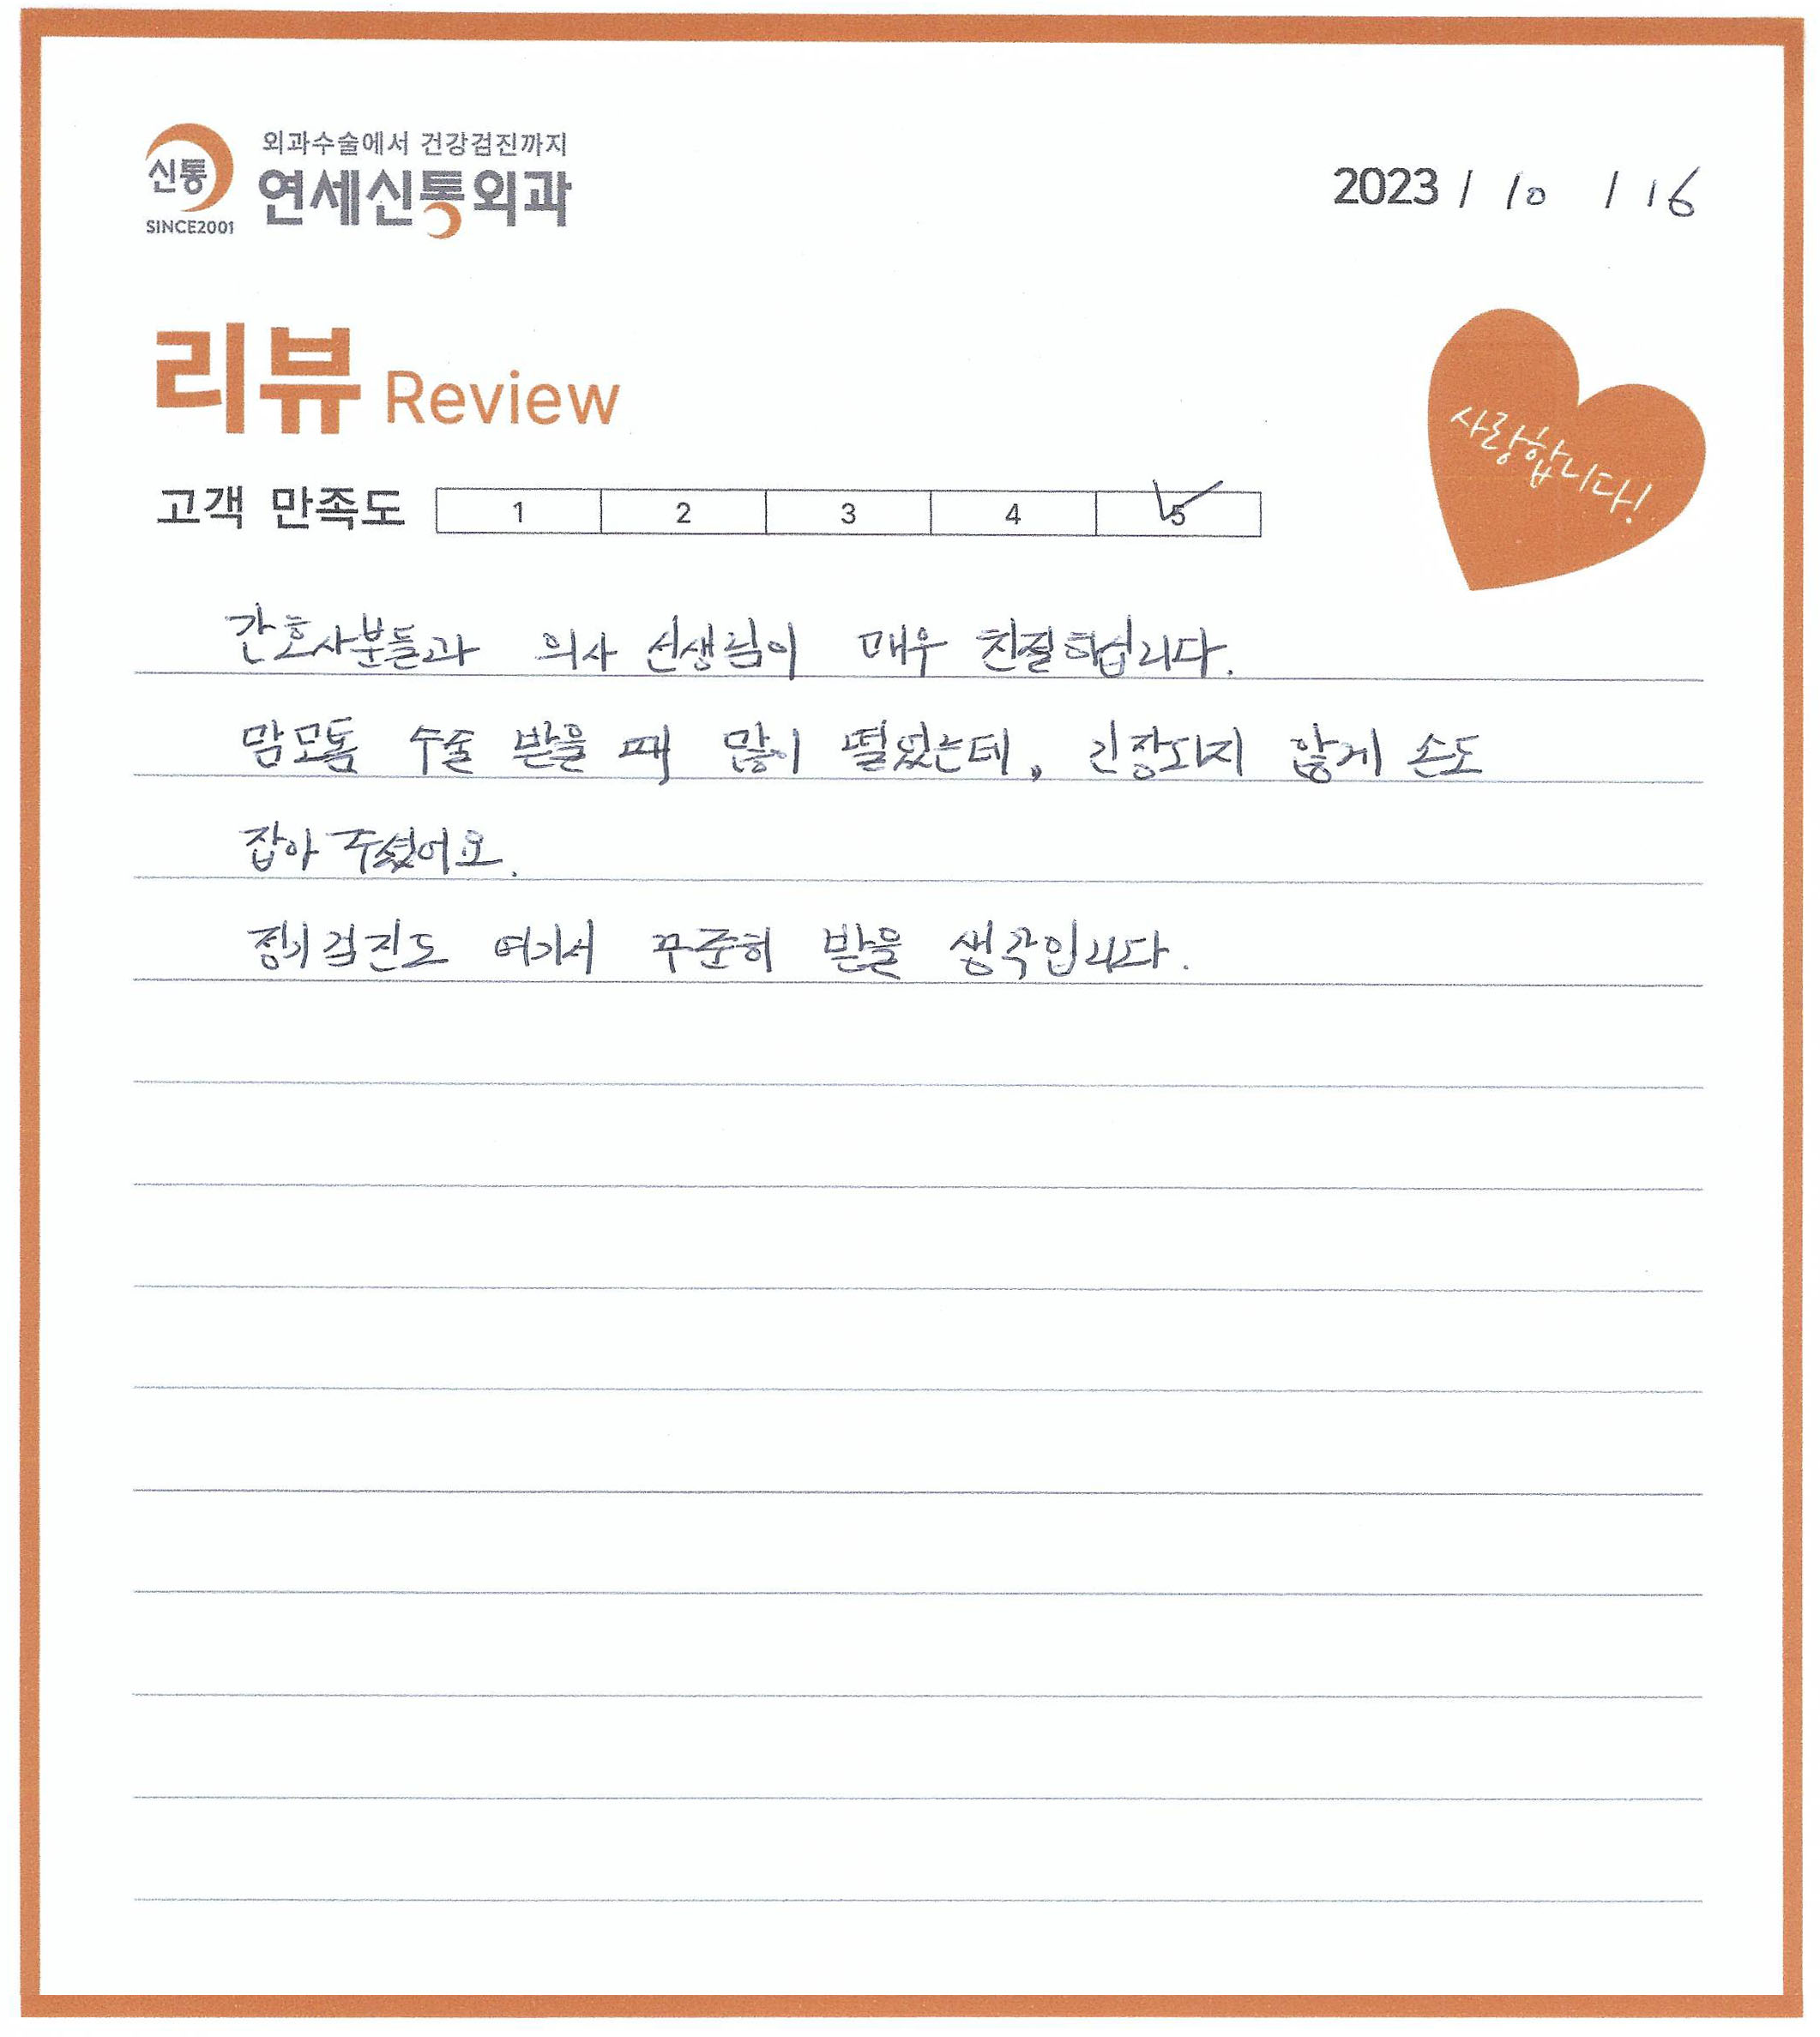 외과수술에서 건강검진까지
신통
연세신통외과
SINCE2001
2023 / 10 / 16
리뷰 Review
사랑합니다!
고객 만족도 1 2 3 4 5
간호사분들과 의사 선생님이 매우 친절하십니다.
맘모톰 수술 받을 때 많이 떨었는데, 긴장되지 않게 손도
잡아 주셨어요.
정기검진도 여기서 꾸준히 받을 생각입니다.